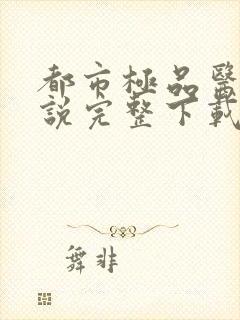 都市極品醫
說完整下載
舞非